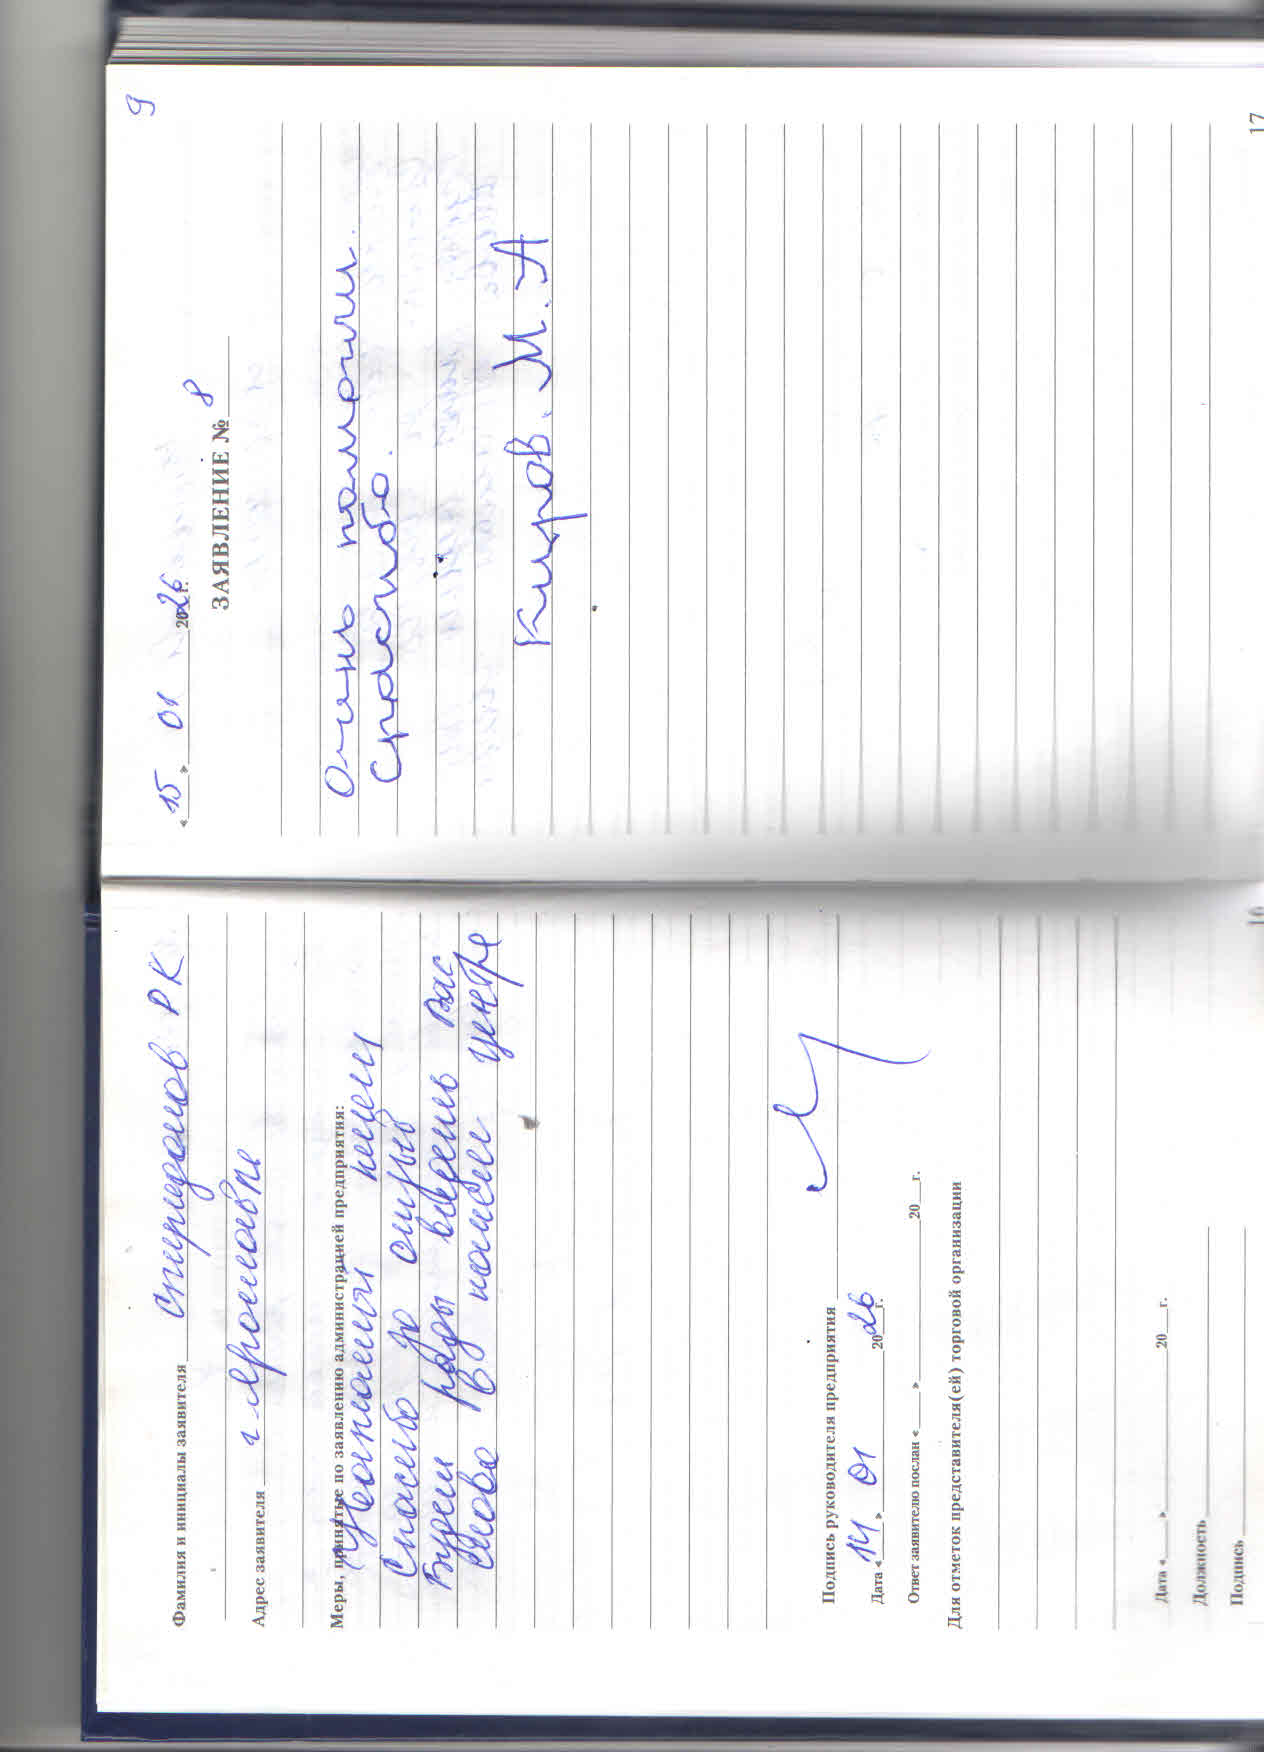 Фамилия и инициалы заявителя Спиридонов РК
Адрес заявителя г Ярославль
Меры, принятые по заявлению администрацией предприятия:
Спасибо за отзыв
Будем рады видеть вас
снова в нашем центре
Подпись руководителя предприятия
Дата «14» 01 2026 г.
Ответ заявителю послан « » 20 г.
Для отметок представителя(ей) торговой организации
Дата « » 20 г.
Должность
Подпись
16
9
«15» 01 2026 г.
ЗАЯВЛЕНИЕ № 8
Очень помогли.
Спасибо.
Киров. М. А
17